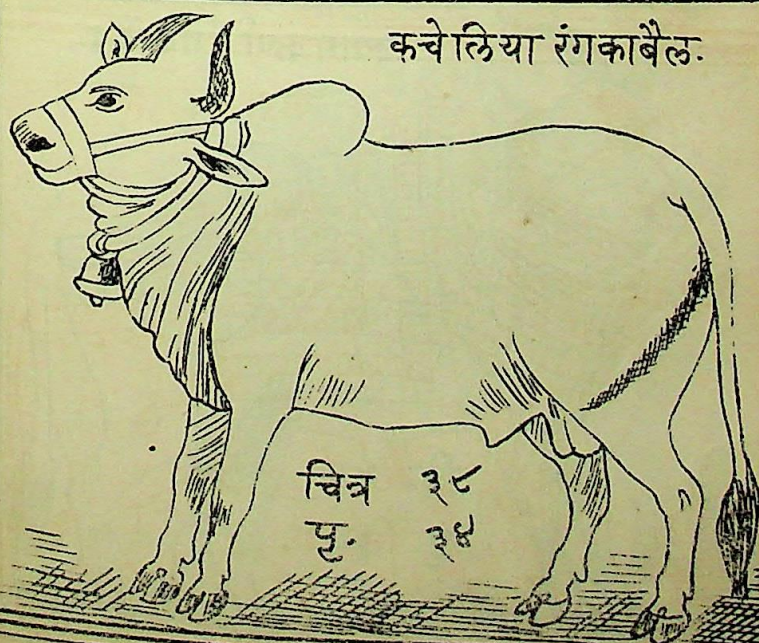 कचेलिया रंगकाबैल.
चित्र ३८
पृ. ३४